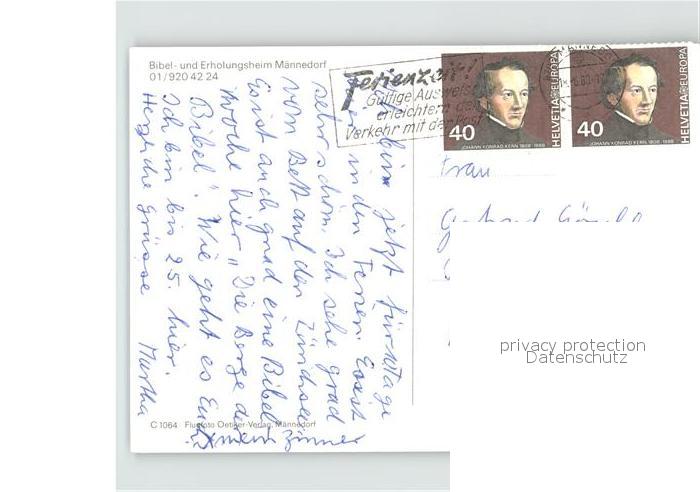 Bibel- und Erholungsheim Männedorf
01/920 42 24
Ferienzeit!
Gültige Ausweise
erleichtern den
Verkehr mit der Post
40
JOHANN KONRAD KERN 1808-1888
HELVETIA EUROPA
40
JOHANN KONRAD KERN 1808-1888
HELVETIA EUROPA
bin jetzt für 10 Tage
hier in den Ferien. Es ist
sehr schön. Ich sehe grad
vom Bett auf den Zürichsee
Es ist auch grad eine Bibel
woche hier „Die Berge der
Bibel". Wie geht es Euch?
Ich bin bis 25. hier.
Herzliche Grüsse Martha
mein Zimmer
Frau
C 1064 Flugfoto Oetiker-Verlag, Männedorf
privacy protection
Datenschutz